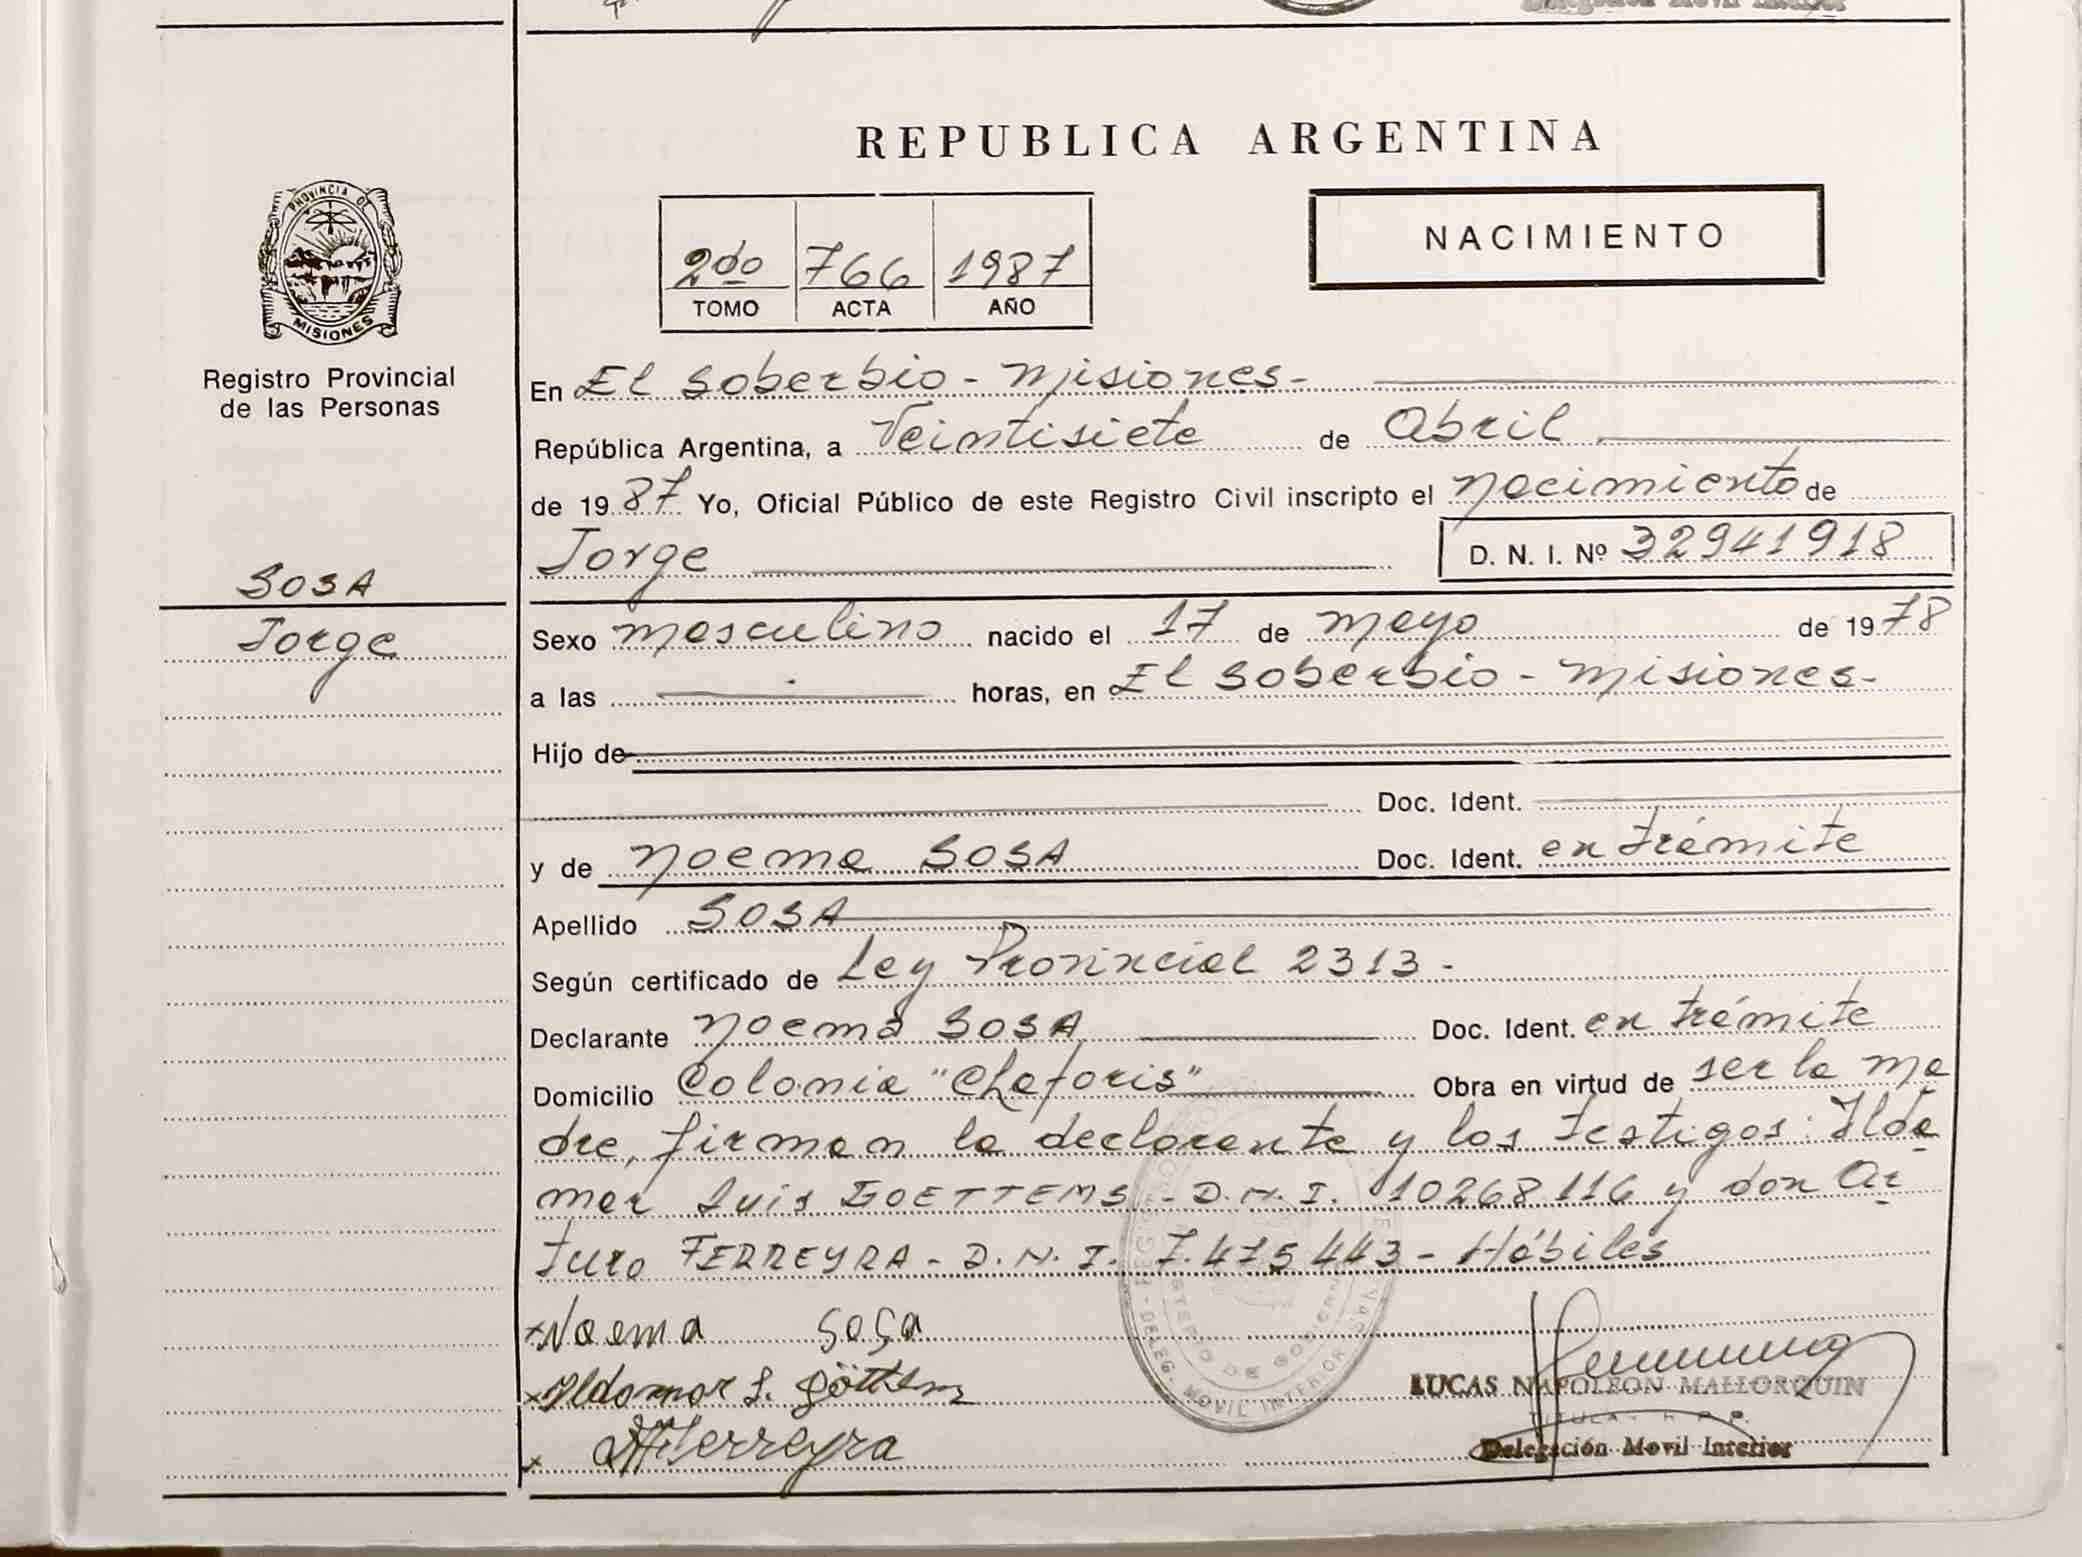 Delegación Movil Interior
REPUBLICA ARGENTINA
PROVINCIA DE
MISIONES
Registro Provincial
de las Personas
SOSA
Jorge
2do 766 1987
TOMO ACTA AÑO
NACIMIENTO
En El Soberbio - Misiones -
República Argentina, a Veintisiete de Abril
de 1987 Yo, Oficial Público de este Registro Civil inscripto el nacimiento de
Jorge D. N. I. Nº 32941918
Sexo masculino nacido el 17 de mayo de 1978
a las horas, en El Soberbio - Misiones -
Hijo de
Doc. Ident.
y de Noema SOSA Doc. Ident. en trámite
Apellido SOSA
Según certificado de Ley Provincial 2313 -
Declarante Noema SOSA Doc. Ident. en trámite
Domicilio Colonia "Chafaris" Obra en virtud de ser la ma
dre, firman la declarante y los testigos: Ilda
mar Luis GOETTEMS - D.N.I. 10268116 y don Ar
turo FERREYRA - D.N.I. 7.475443 - Hábiles
x Noema Sosa
x Ildomar L. Göttems
x Ferreyra
DELEG. MOVIL INTERIOR
LUCAS NAPOLEON MALLORQUIN
TITULAR R.P.P.
Delegación Movil Interior